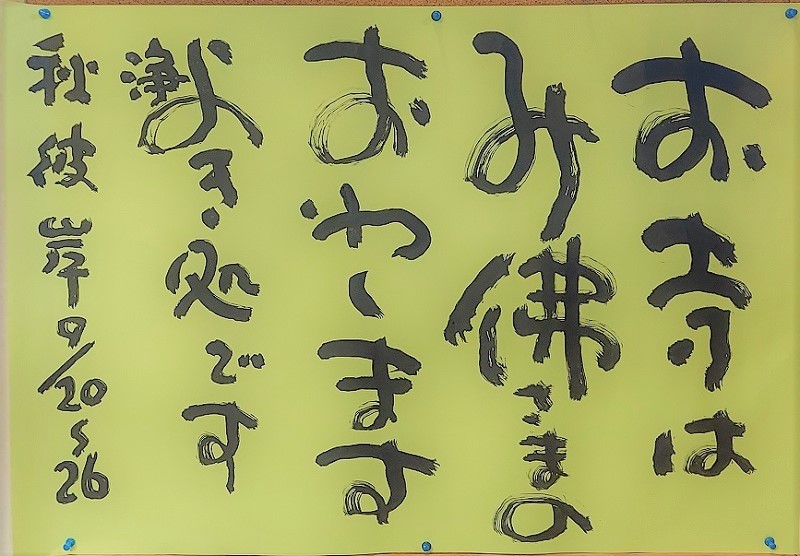 お寺は
み佛さまの
おわします
浄よき処です
秋彼岸9/20〜26